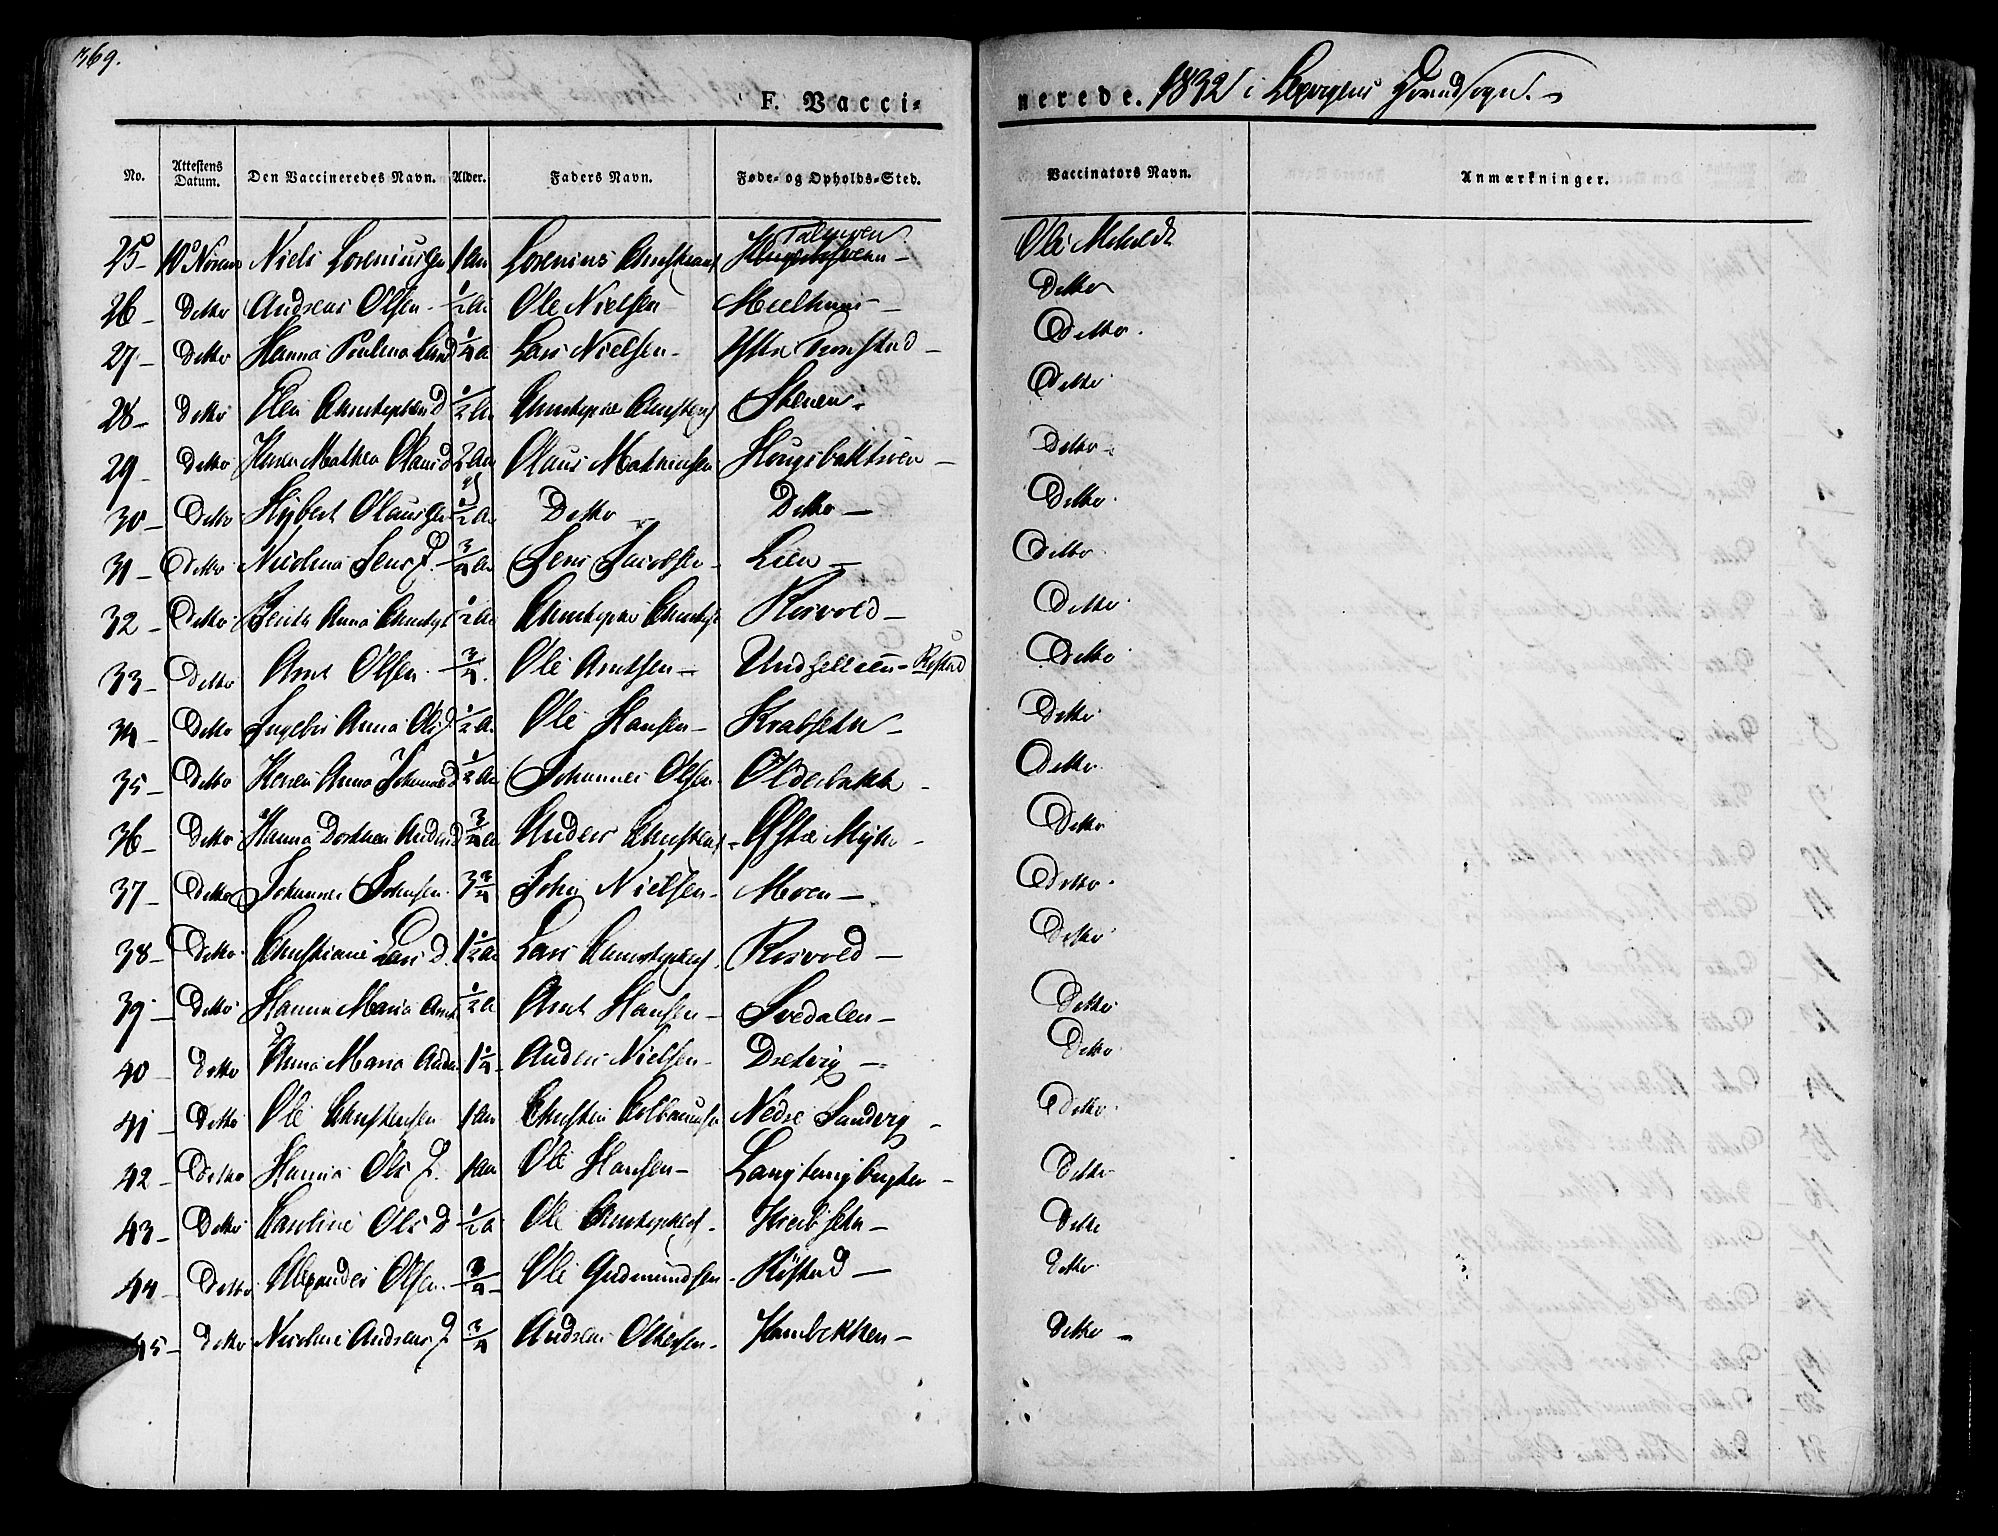 369.
F. Vacci-
nerede. 1832 i Lexvigens Hovedsogn.
No. Attestens Datum. Den Vaccineredes Navn. Alder. Faders Navn. Føde- og Opholds-Sted. Vaccinators Navn. Anmærkninger.
25 - 10 Novem Niels Loreniusen 1 an Lorenius Christians Ole Meholdt
26 - Detto Andreas Olsen 1/2 a Ole Nielsen Meelhuus - Detto
27 - Detto Hanna Paulina Larsd 1/4 a Lars Nielsen - Ystre Tronstad - Detto
28 - Detto Elen Christophersd 1/2 an Christopher Christens Steenen - Detto
29 - Detto Karen Mathea Olausd 2 an Olaus Mathiasen Hougsbakttrøen - Detto
30 - Detto Olaus 1/2 a Detto Detto - Detto
31 - Detto Nicolina Jens D. 3/4 a Jens Jacobsen - Lien - Detto
32 - Detto Berith Anna Christoph 1/2 a Christopher Christoph Reisvold - Detto
33 - Detto Arnt Olsen 3/4 Ole Arntsen - Røstad Detto
34 - Detto Ingebor Anna Olsd 1/2 a Ole Hansen - Krabsetn - Detto
35 - Detto Karen Anna Johannesd 1/2 a Johannes Olsen Olderbakk - Detto
36 - Detto Hanna Dorthea Andersd 3/4 a Anders Christens - Ystre Myhr - Detto
37 - Detto Johannes Johnsen 3 3/4 John Nielsen - Moen - Detto
38 - Detto Christiane Lars D. 1 1/2 a Lars Christophers. Reisvold - Detto
39 - Detto Hanna Maria Arnt 1/2 a Arnt Hansen - Svedalen - Detto
40 - Detto Anna Maria Anders 1 1/4 Anders Nielsen - Dretvig - Detto
41 - Detto Ole Christensen 1 an Christen Colbiørnsen Nedre Sandvig - Detto
42 - Detto Hanna Ols D. 1 an Ole Hansen - Detto
43 - Detto Karoline Ols D 1/2 a Ole Christophers - Krabsetn - Detto
44 - Detto Alexander Olsen 3/4 - Ole Gudmundsen - Røstad - Detto
45 - Detto Nicoline Andreas D 3/4 Andreas Ottersen - Hambekken - Detto -